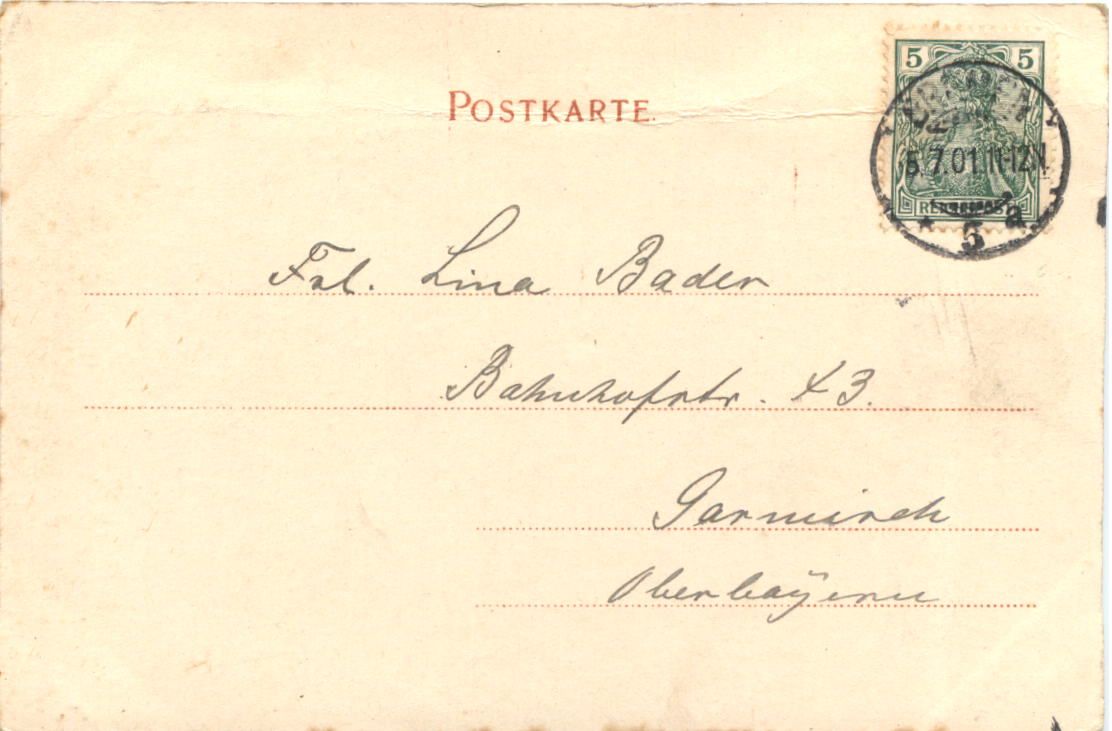 5 5
POSTKARTE.
5.7.01.11-12N
REICHSPOST
* 5 a
Frl. Lina Bader
Bahnhofstr. 43.
Garmisch
Oberbaÿern